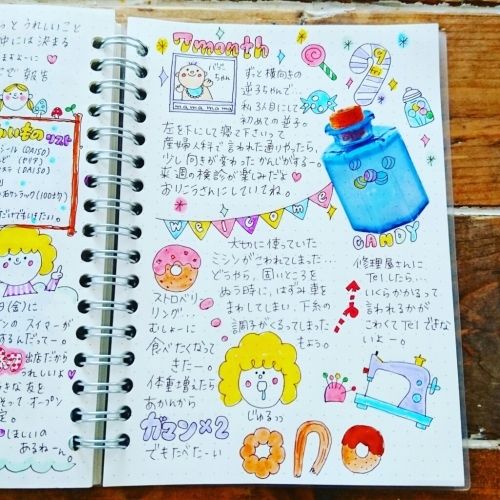 っと うれしいこと
中には 決まる
で 報告
かいもの リスト
シール (DAISO)
ど (セリア)
ステ (DAISO)
ラック (100均)
だけで 生けたい。
日(金)に
ンの スイマーが
するんだってー。
出店だから
うれしいよ
きな 友を
そって オープン
定。
ほしいの
あるねーん。
7month
ベビーちゃん
mamamama
ずと 横向きの
逆子ちゃんで…
私3人目にして
初めての 逆子。
左を下にして 寝て下さいって
産婦人科で 言われた通りやったら、
少し 向きが 変わった かんじがするー。
来週の 検診が 楽しみだよ
おりこうさんにしていてね。
welcome
CANDY
大切に 使っていた
ミシンが こわれてしまった…
どうやら、固いところを
ぬう時に、はずみ車を
まわしてしまい、下糸の
調子がくるってしまった
もよう。
修理屋さんに
Telしたら…
いくらかかるって
言われるかが
こわくて Telできな
いよー。
ストロベリー
リング…
むしょーに
食べたくなって
きたー。
体重増えたら
あかんから
ガマン×2
でもたべたーい
じゅるっ